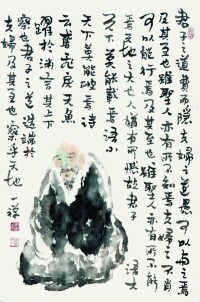 君子之道費而隱夫婦之愚可以与知焉
及其至也雖聖人亦有所不知焉夫婦之不肖
可以能行焉及其至也雖聖人亦有所不能
焉天地之大也人猶有所憾故君子語大
天下莫能載焉語小
天下莫能破焉詩
云鳶飛戾天魚
躍於淵言其上下
察也君子之道造端於
夫婦及其至也察乎天地